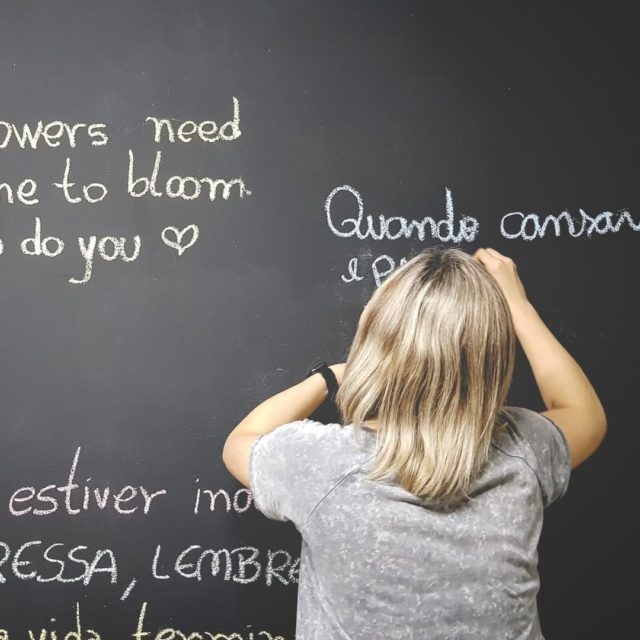 owers need
me to bloom
o do you ♡
Quando cansar
e
estiver ind
RESSA, LEMBRE
a vida termin